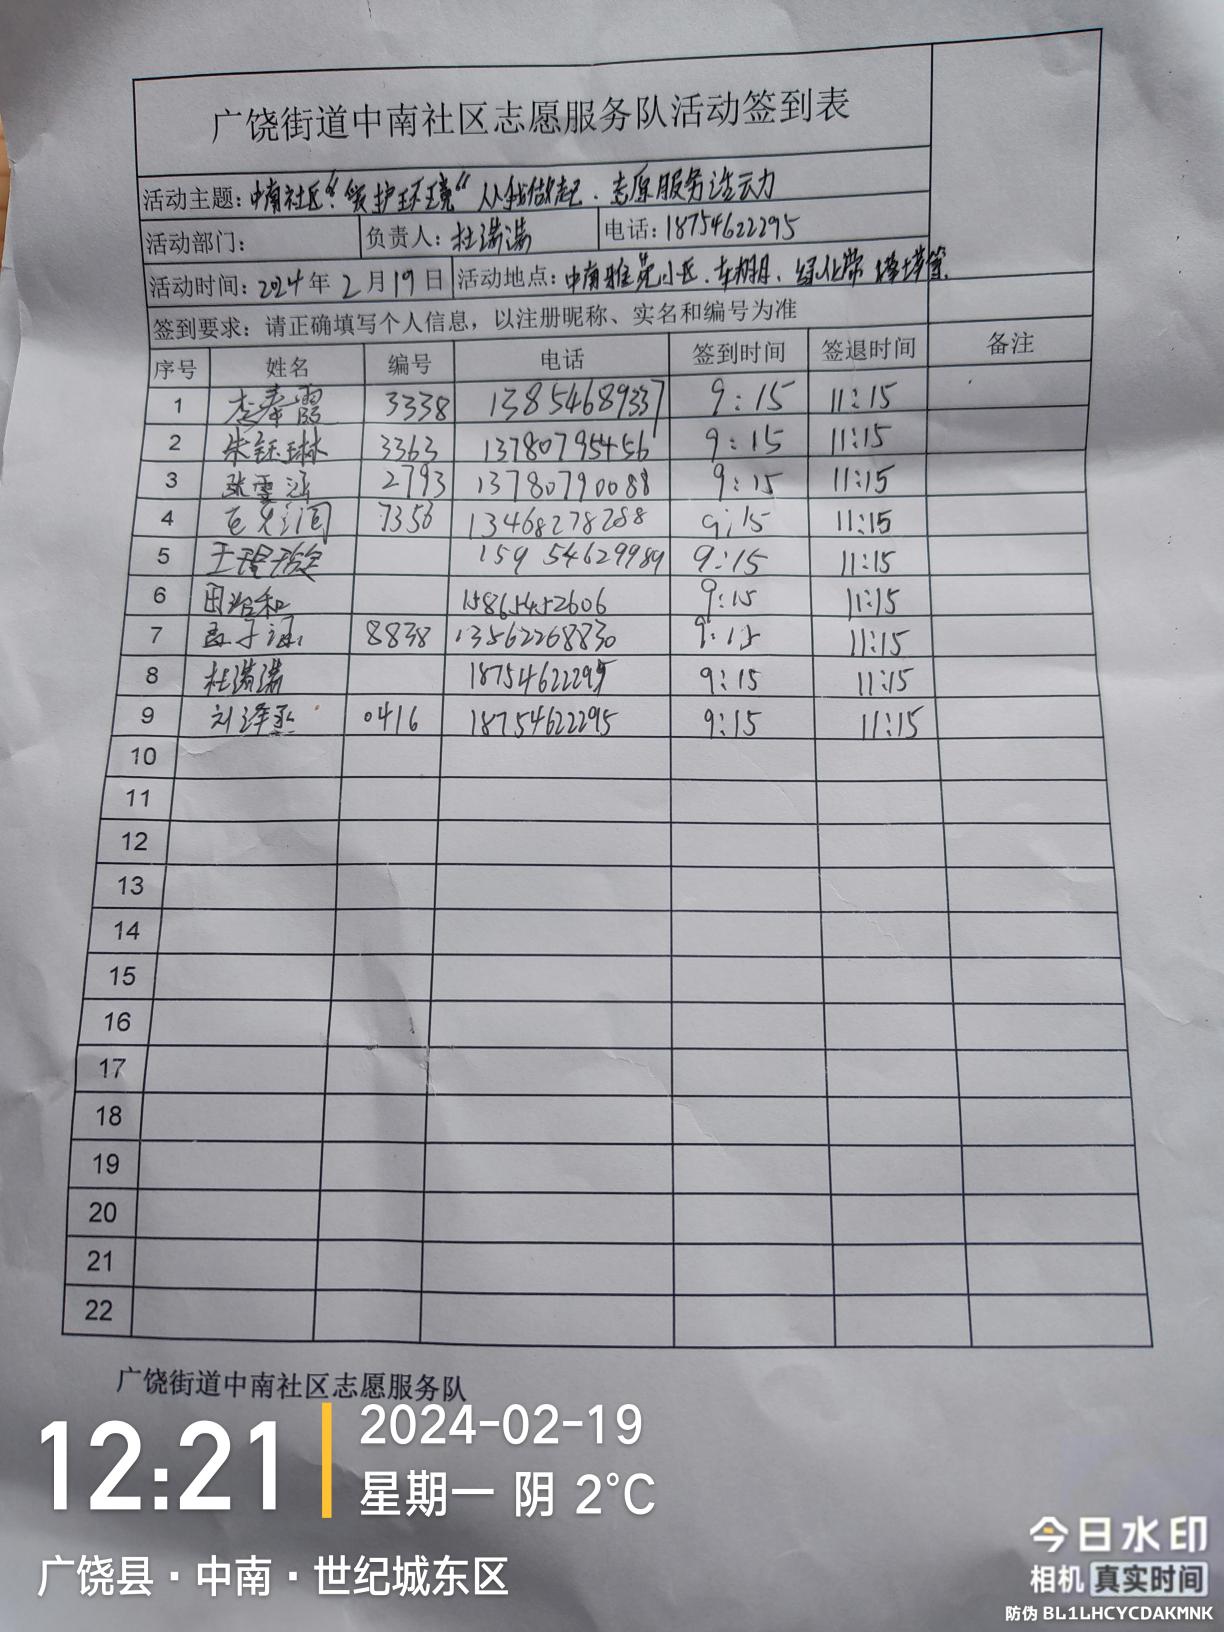 广饶街道中南社区志愿服务队活动签到表
活动主题：中南社区“爱护环境“从我做起．志愿服务活动
活动部门： 负责人：杜满满 电话：18754622295
活动时间：2024年2月19日 活动地点：中南雅苑小区．车棚、绿化带
签到要求：请正确填写个人信息，以注册昵称、实名和编号为准
序号 姓名 编号 电话 签到时间 签退时间 备注
1 3338 13854689337 9:15 11:15
2 朱钰琳 3363 13780795456 9:15 11:15
3 张雲涵 2793 13780790088 9:15 11:15
4 7356 13468278288 9:15 11:15
5 15954629989 9:15 11:15
6 田 和 15865452606 9:15 11:15
7 孟子涵 8838 13562268830 9:15 11:15
8 杜满满 18754622295 9:15 11:15
9 刘泽丞 0416 18754622295 9:15 11:15
10
11
12
13
14
15
16
17
18
19
20
21
22
广饶街道中南社区志愿服务队
12:21
2024-02-19
星期一 阴 2°C
广饶县·中南·世纪城东区
今日水印
相机 真实时间
防伪 BL1LHCYCDAKMNK